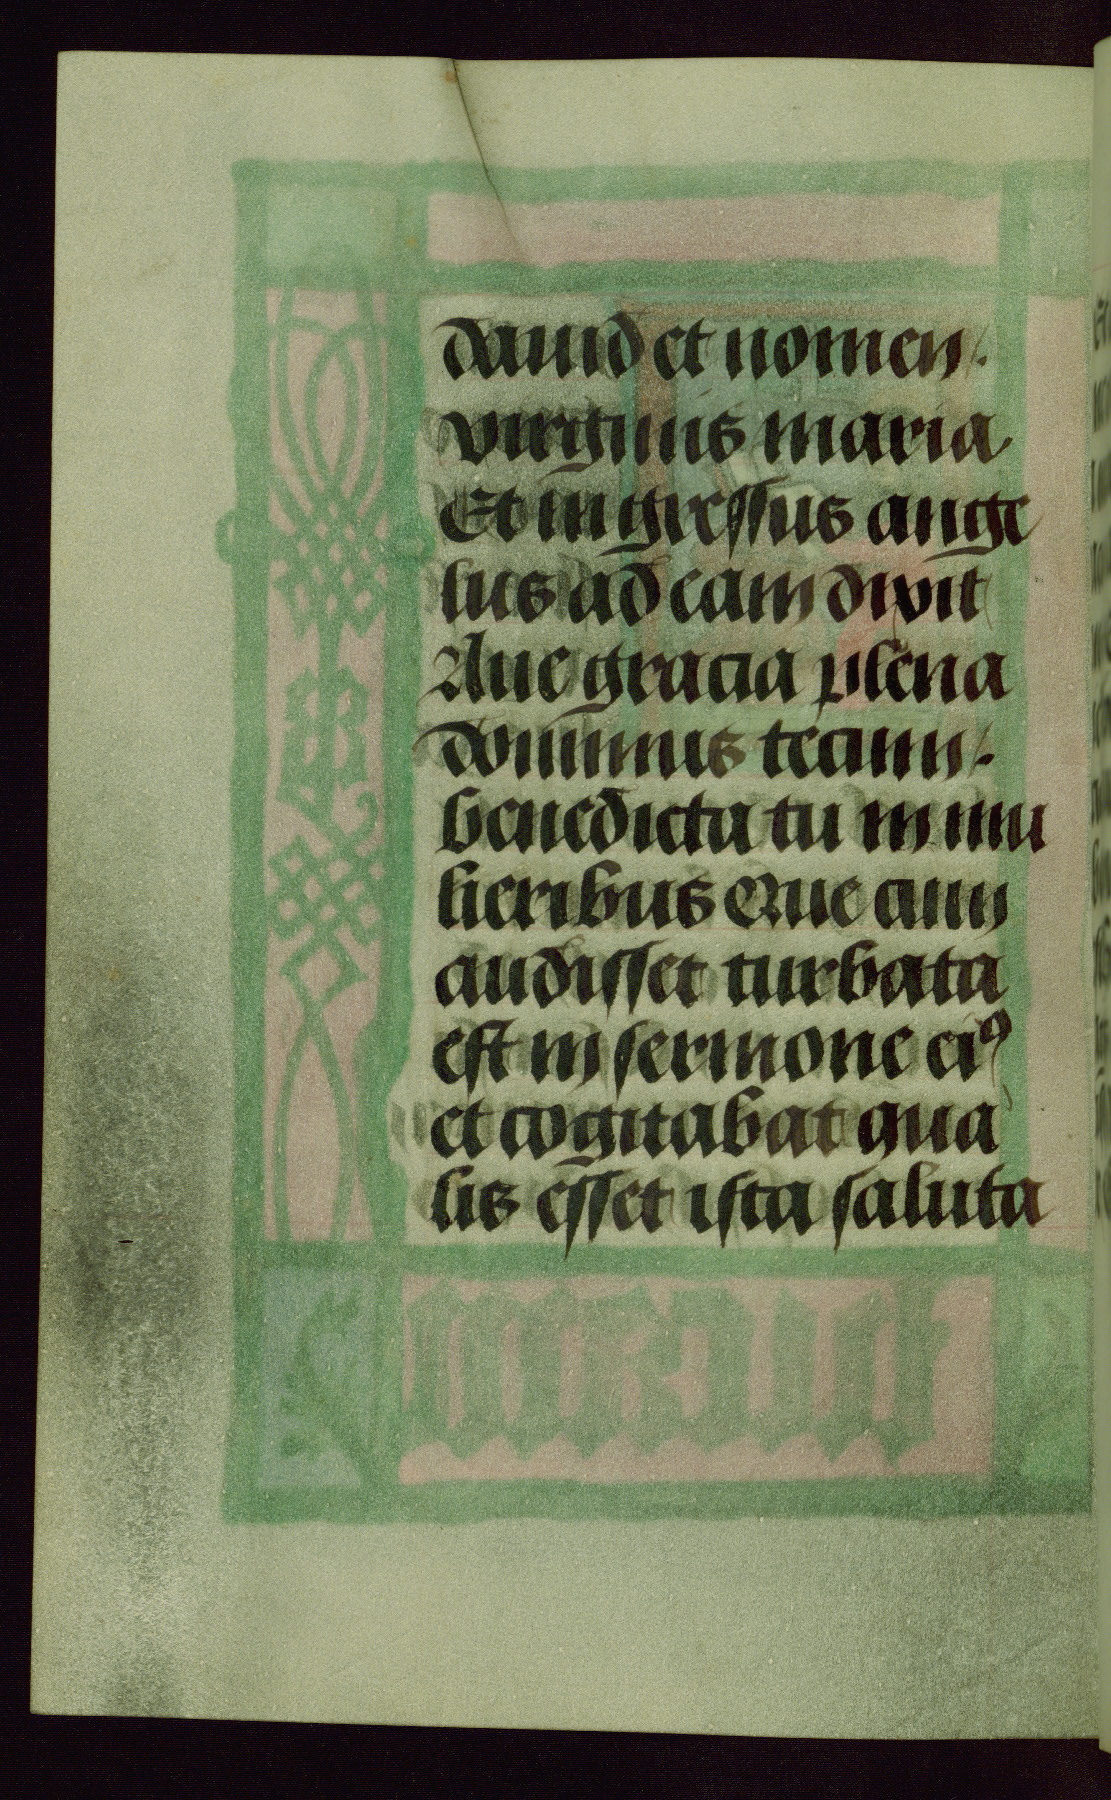 dauid et nomen /.
virginis maria
Et ingressus ange
lus ad eam dixit
Aue gracia plena
dominus tecum /.
benedicta tu in mu
lieribus Que cum
audisset turbata
est in sermone eiꝰ
et cogitabat qua
lis esset ista saluta